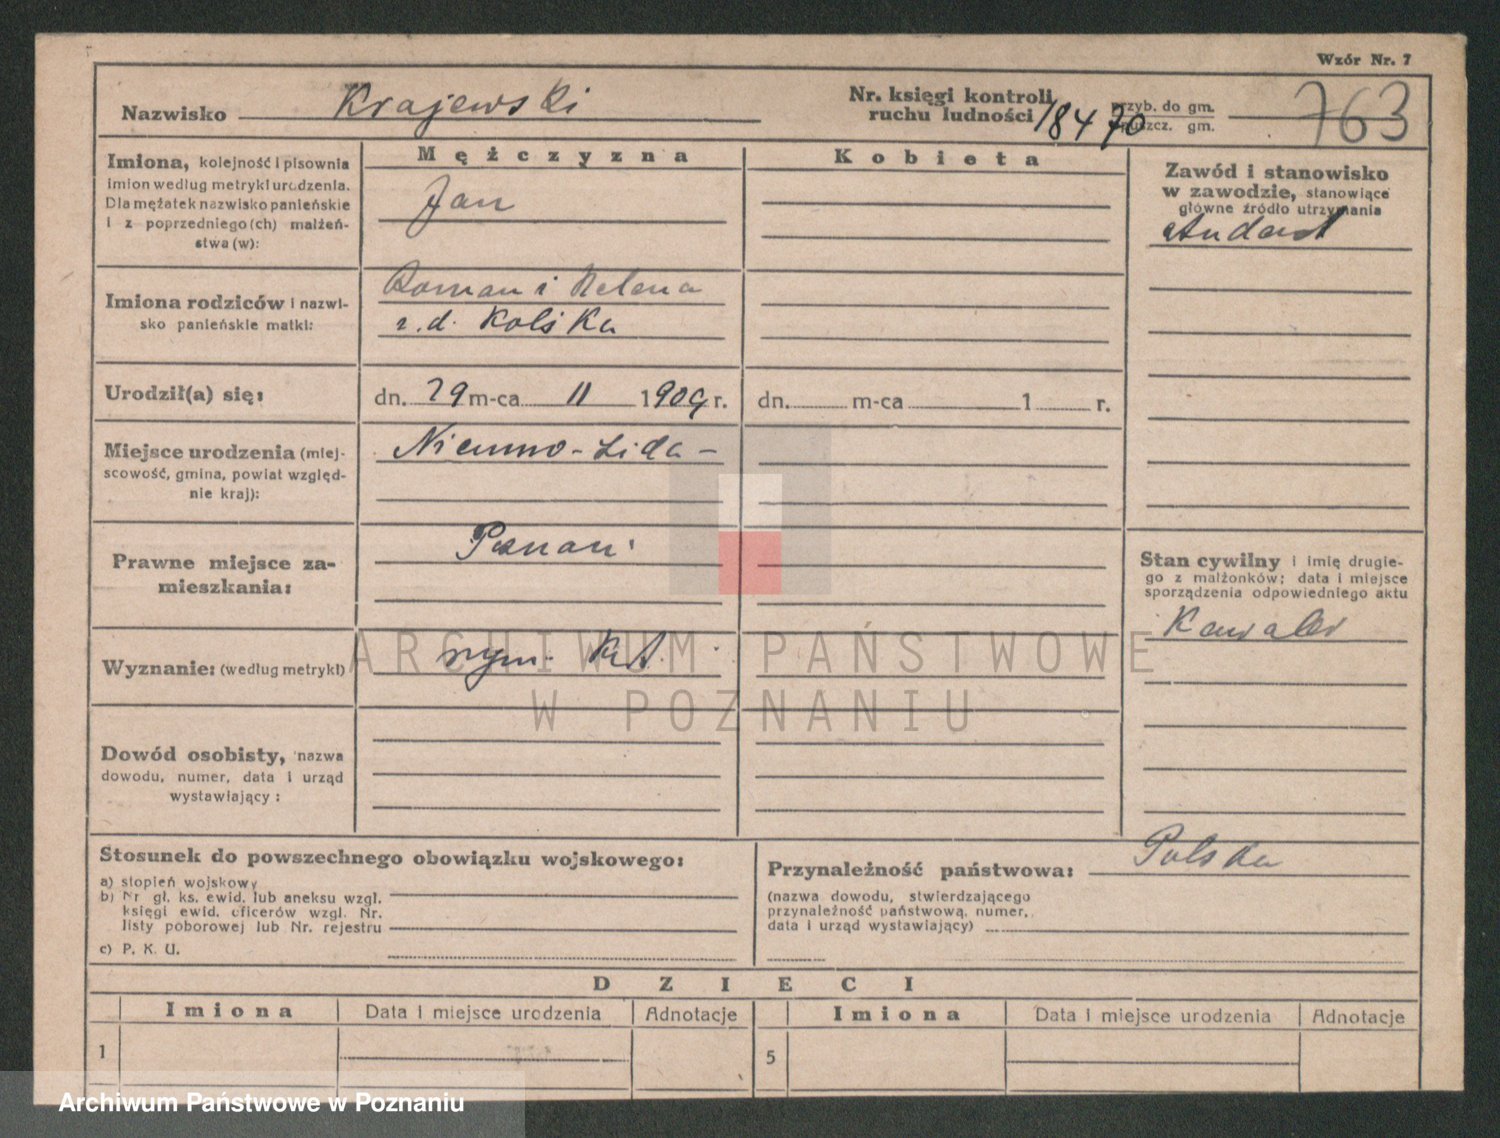 Wzór Nr. 7
Nazwisko Krajewski
Nr. księgi kontroli
ruchu ludności 18470
przyb. do gm.
gm.
763
Imiona, kolejność i pisownia
imion według metryki urodzenia.
Dla mężatek nazwisko panieńskie
i z poprzedniego (ch) małżeń-
stwa (w):
Mężczyzna
Jan
Kobieta
Zawód i stanowisko
w zawodzie, stanowiące
główne źródło utrzymania
student
Imiona rodziców i nazwi-
sko panieńskie matki:
Roman i Helena
z.d. Kolska
Urodził(a) się:
dn. 29 m-ca 11 1909 r.
dn. m-ca 1 r.
Miejsce urodzenia (miej-
scowość, gmina, powiat względ-
nie kraj):
- Lida -
Prawne miejsce za-
mieszkania:
Poznań
Stan cywilny i imię drugie-
go z małżonków; data i miejsce
sporządzenia odpowiedniego aktu
Kawaler
Wyznanie: (według metryki)
rzym. kat.
ARCHIWUM PAŃSTWOWE
W POZNANIU
Dowód osobisty, nazwa
dowodu, numer, data i urząd
wystawiający :
Stosunek do powszechnego obowiązku wojskowego:
a) stopień wojskowy
b) Nr gł. ks. ewid. lub aneksu wzgl.
księgi ewid. oficerów wzgl. Nr.
listy poborowej lub Nr. rejestru
c) P. K. U.
Przynależność państwowa: Polska
(nazwa dowodu, stwierdzającego
przynależność państwową, numer,
data i urząd wystawiający)
DZIECI
Imiona Data i miejsce urodzenia Adnotacje Imiona Data i miejsce urodzenia Adnotacje
1 5
Archiwum Państwowe w Poznaniu